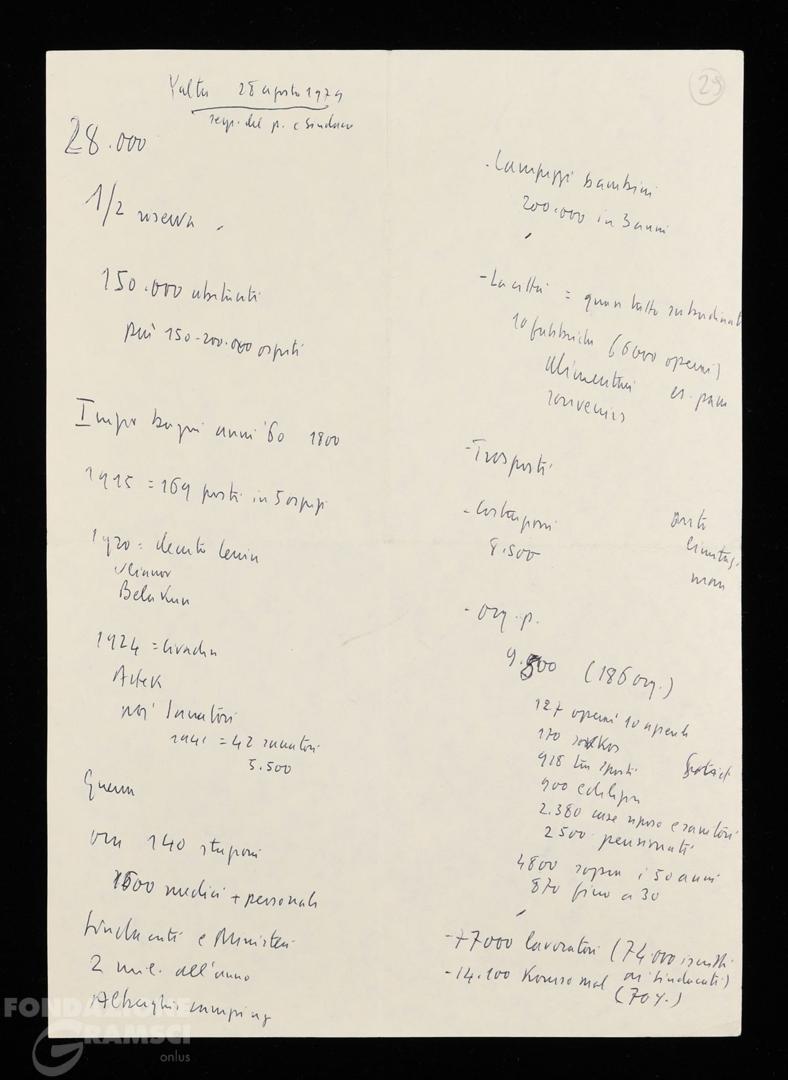 29
Yalta 28 agosto 1979
resp. del p. e sindaco
28.000
1/2 riserva
150.000 abitanti
più 150-200.000 ospiti
I bagni anni '60 1800
1915 = 169 posti in 5 ospizi
1920 = decreto Lenin
Ulianov
Bela Kun
1924 = Livadia
Artek
poi sanatori
1941 = 42 sanatori
5.500
Guerra
ora 140 stazioni
1600 medici + personale
Sindacati e Ministeri
2 mil. all'anno
Alberghi camping
- Campeggi bambini
200.000 in 3 anni
- La città = quasi tutto subordinato
10 fabbriche (6000 operai)
alimentari es. pane
souvenirs
- Trasporti
- Costruzioni
8.500
- Org. p.
9.500 (186 org.)
127 operai 10 aziende
170 sovkos
918 trasporti
900 edilizia
2.380 case riposo e sanatori
2500 pensionati
4800 sopra i 50 anni
870 fino a 30
- 77000 lavoratori (74.000 iscritti
ai sindacati)
- 14.100 Komsomol (70%)
FONDAZIONE
GRAMSCI
onlus